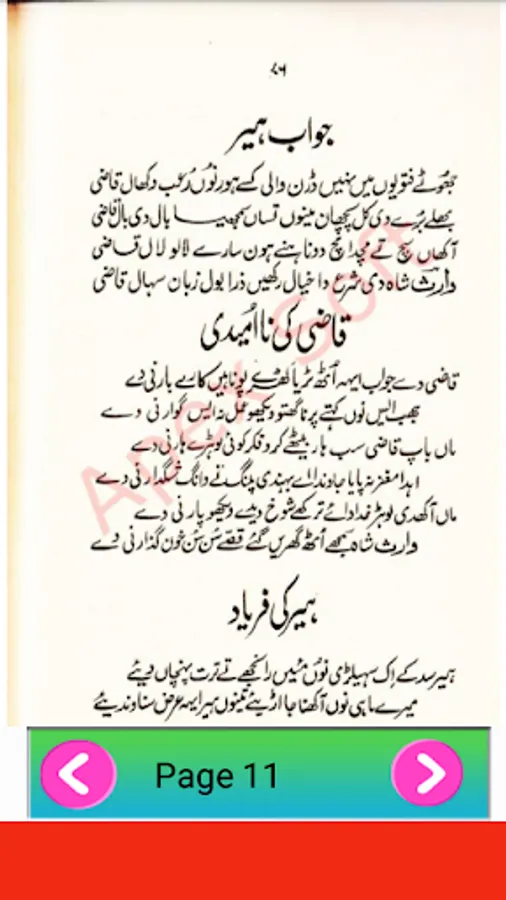 ۸۶
جواب ہیر
جھوٹے فتویوں میں نہیں ڈرن والی کسے ہور نوں رعب دکھال قاضی
بھلے بُرے دی کل پچھان مینوں تساں سمجھیا بال دی بال قاضی
آکھاں سچ تے مچدا مچ دونا ہنے ہون سارے لالو لال قاضی
وارث شاہ دی شرع دا خیال رکھیں ذرا بول زبان سنبھال قاضی
قاضی کی نا اُمیدی
قاضی دے جواب ایہہ اُٹھ ٹریا کھڑے پونا ہیں کاسے بار نی دے
جھب ایس نوں کہتے پرنا گھتو دیکھو عمل نہ ایس گوار نی دے
ماں باپ قاضی سب ہار بیٹھے کرو فکر کوئی لوہڑے مار نی دے
ایہدا مغز نہ پایا جاوندا اے پہندی پلنگ نے وانگ شنگار نی دے
ماں آکھدی لوہڑ خدا دا اے ترکھے شوخ دیدے دیکھو پار نی دے
وارث شاہ سبھے اُٹھ گھریں گئے قصے سُن سُن خون گذار نی دے
ہیر کی فریاد
ہیر سد کے اِک سہیلڑی نوں مئیں رانجھے تے ترت پہنچاں دیئے
میرے ماہی نوں آکھنا جا اڑیئے تینوں ہیر ایہہ عرض سناوندیئے
Apex Soft
Page 11